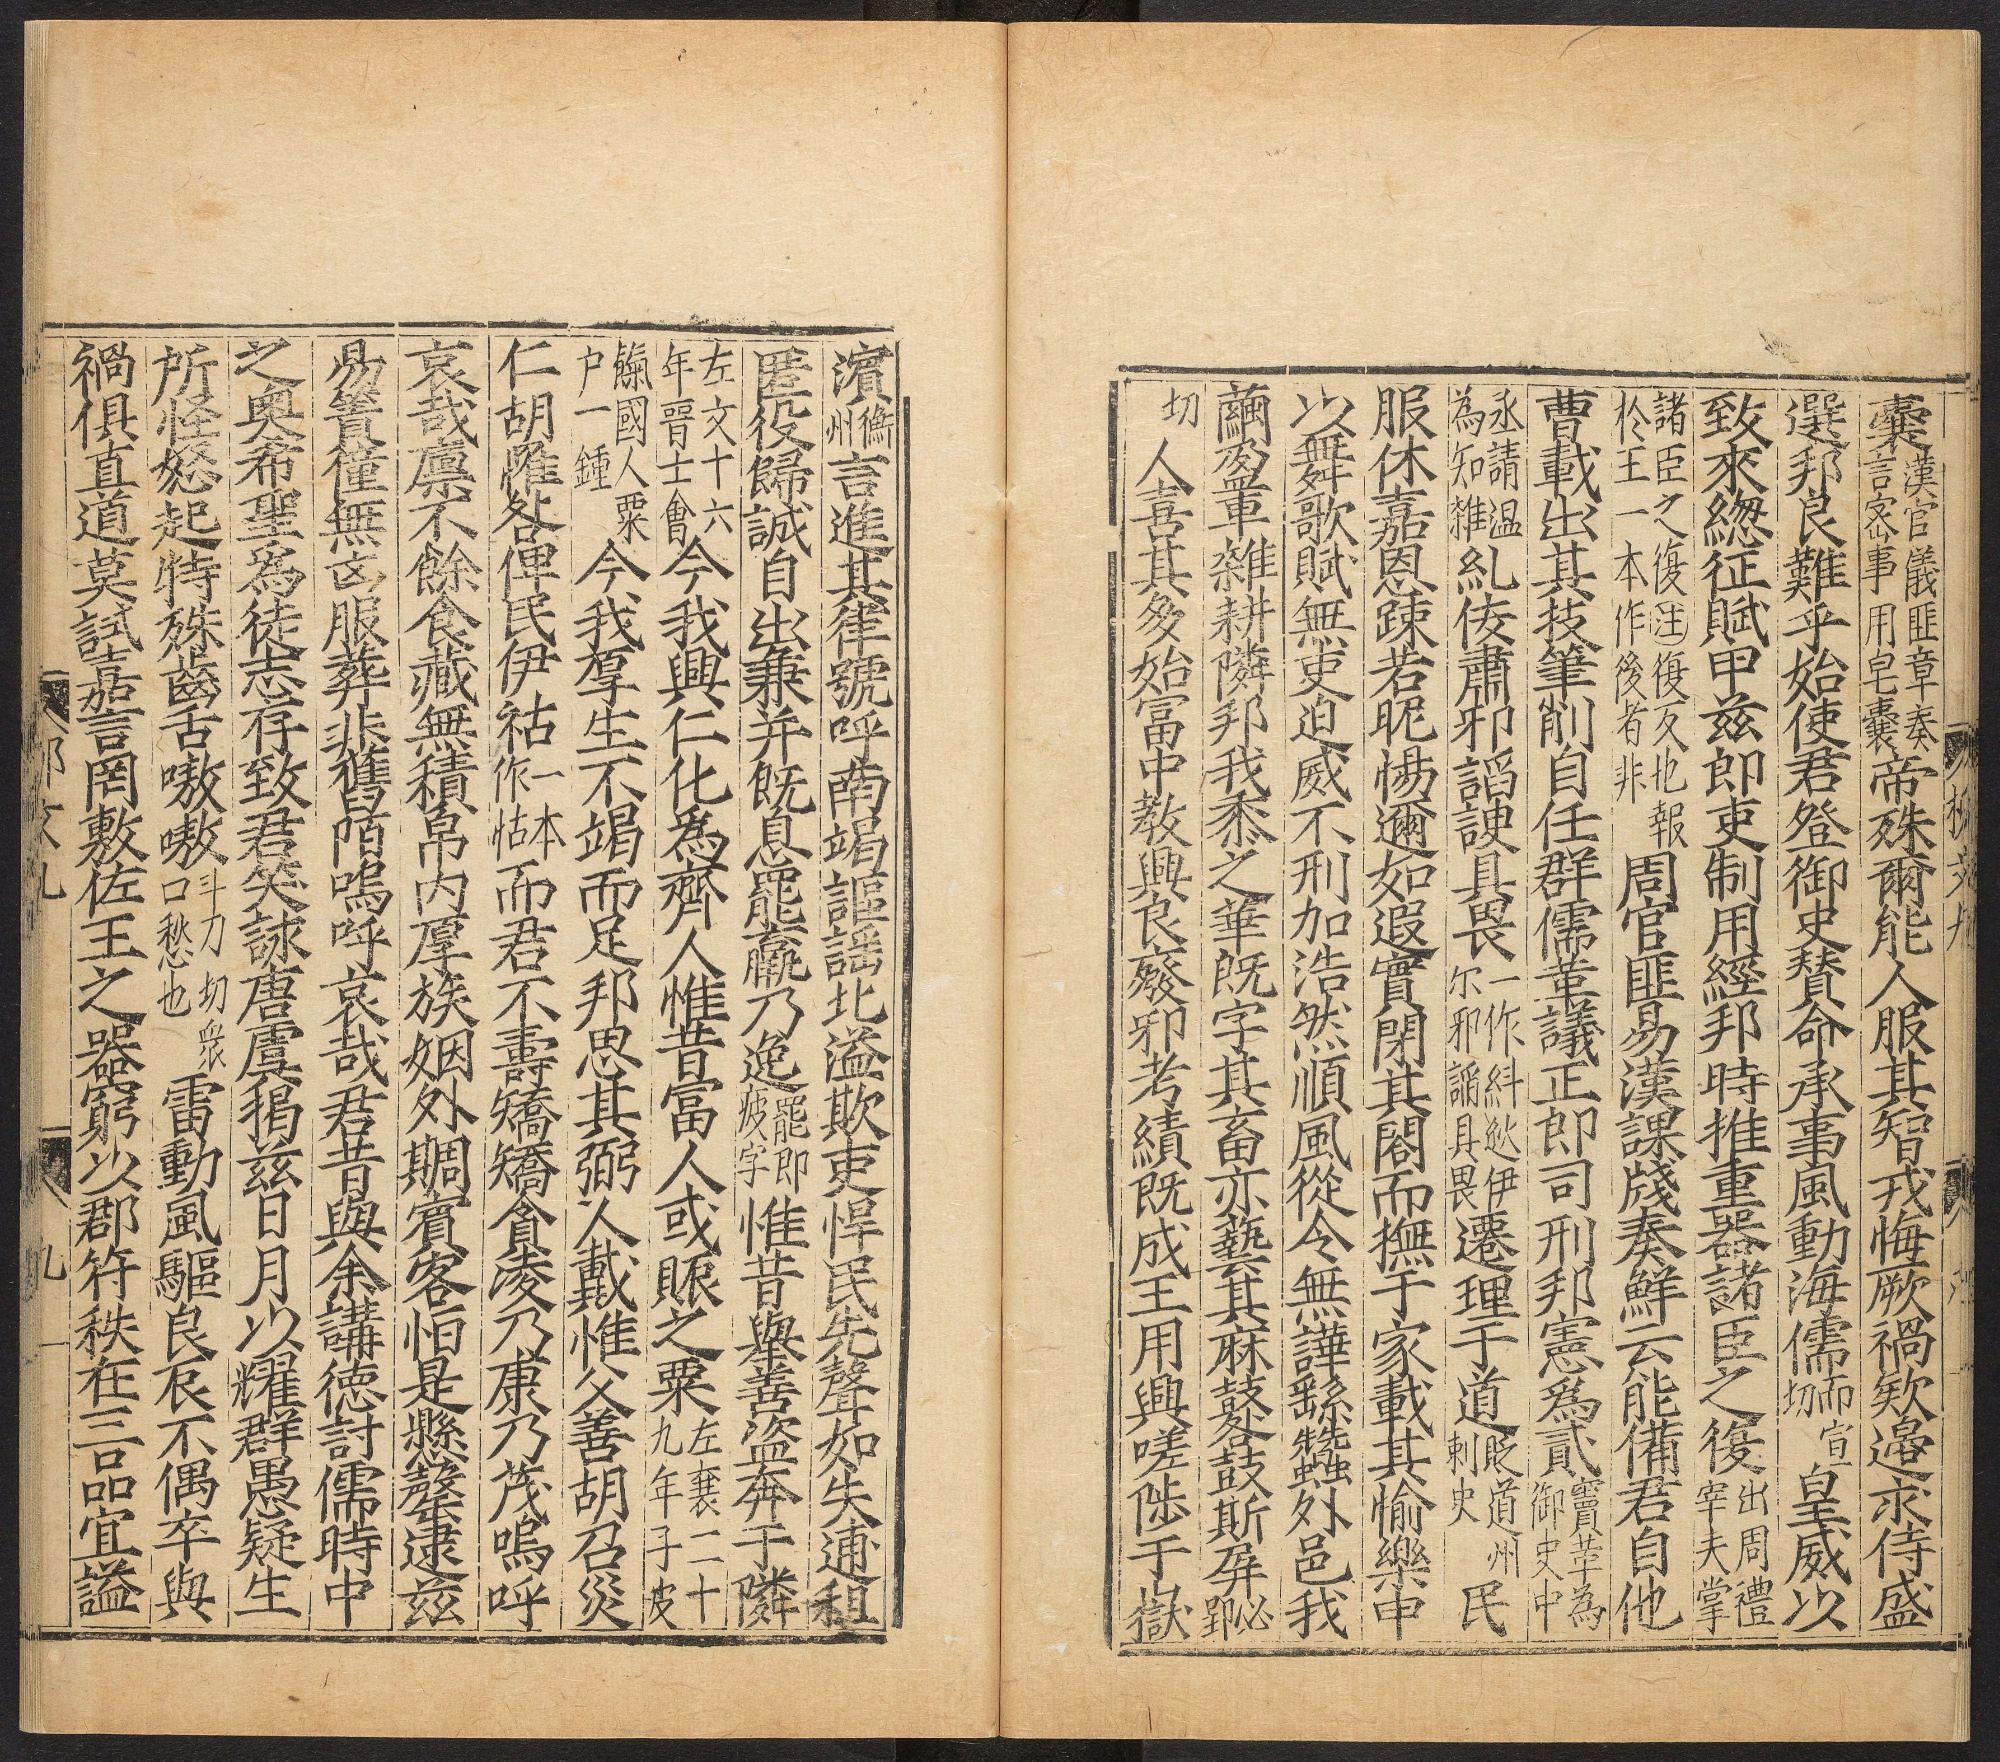 囊漢官儀匪章奏言密事用皂囊帝殊爾能人服其智戎悔厥禍欵邊求侍盛
選邦良難乎始使君登御史贊命承事風動海儒而宣切皇威以
致來緫征賦甲兹郎吏制用經邦時推重器諸臣之復出周禮宰夫掌
諸臣之復注復反也報於王一本作後者非周官匪易漢課牋奏鮮云能備君自他
曹載出其技筆削自任群儒革議正郎司刑邦憲爲貳竇羣為御史中
丞請温為知雜糺佞肅邪諂諛具畏一作糾逖伊尔邪謟具畏遷理于道貶道州刺史民
服休嘉恩踈若昵惕邇如遐實閉其閤而撫于家載其愉樂申
以舞歌賦無吏迫威不刑加浩然順風從令無譁繇蠶外邑我
繭盈車雜耕隣邦我黍之華既字其畜亦藝其麻鼛鼓斯屏必郢
切人喜其多始富中教興良廢邪考績既成王用興嗟陟于嶽
濱衡州言進其律號呼南竭謳謡北溢欺吏悍民先聲如失逋租
匿役歸誠自出兼并既息罷羸乃逸罷即疲字惟昔舉善盜奔于隣
左文十六年晉士會今我興仁化爲齊人惟昔富人或賑之粟左襄二十九年子皮
餼國人粟户一鍾今我厚生不竭而足邦思其弼人戴惟父善胡召災
仁胡罹咎俾民伊祜一本作怙而君不壽矯矯貪凌乃康乃茂嗚呼
哀哉廪不餘食藏無積帛内厚族姻外賙賓客怕是懸罄逮兹
易簀僮無凶服葬非舊陌嗚呼哀哉君昔與余講徳討儒時中
之奥希聖爲徒志存致君笑詠唐虞揭兹日月以耀群愚疑生
所怪怒起特殊齒舌嗷嗷斗刀切衆口愁也雷動風驅良辰不偶卒與
禍俱直道莫試嘉言罔敷佐王之器窮以郡符秩在三品宜謚